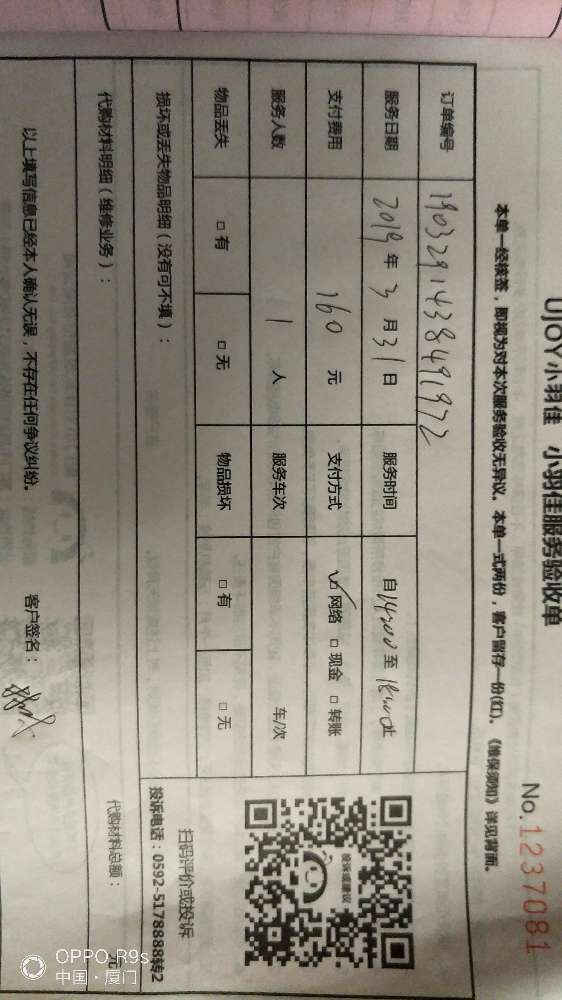 UJOY小羽佳 小羽佳服务验收单
No.1237081
本单一经接签，即视为对本次服务验收无异议。本单一式两份，客户留存一份(红)。《维保须知》详见背面。
订单编号 1903291438491972
服务日期 2019年3月31日 服务时间 自14:00至18:00止
支付费用 160元 支付方式 ☑网络 □现金 □转账
服务人数 1人 服务车次 车/次
物品丢失 □有 □无 物品损坏 □有 □无
投诉或建议
扫码评价或投诉
投诉电话：0592-5178888转2
损坏或丢失物品明细（没有可不填）：
代购材料明细（维修业务）： 代购材料总额： 元
以上填写信息已经本人确认无误，不存在任何争议纠纷。 客户签名：
OPPO R9s
中国·厦门